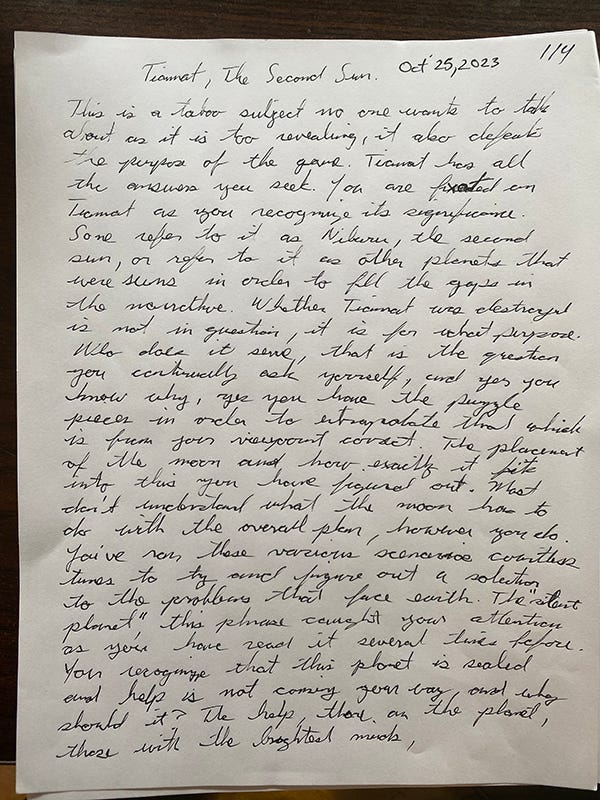 1/4
Tiamat, The Second Sun. Oct 25, 2023
This is a taboo subject no one wants to talk
about as it is too revealing, it also defeats
the purpose of the game. Tiamat has all
the answers you seek. You are fixated on
Tiamat as you recognize its significance.
Some refer to it as Niburu, the second
sun, or refer to it as other planets that
were suns in order to fill the gaps in
the narrative. Whether Tiamat was destroyed
is not in question, it is for what purpose.
Who does it serve, that is the question
you continually ask yourself, and yes you
know why, yes you have the puzzle
pieces in order to extrapolate that which
is from your viewpoint correct. The placement
of the moon and how exactly it fits
into this you have figured out. Most
don't understand what the moon has to
do with the overall plan, however you do.
You've ran these various scenarios countless
times to try and figure out a solution
to the problems that face earth. The "silent
planet", this phrase caught your attention
as you have read it several times before.
You recognize that this planet is sealed
and help is not coming your way, and why
should it? The help, there, on the planet,
those with the brightest minds,